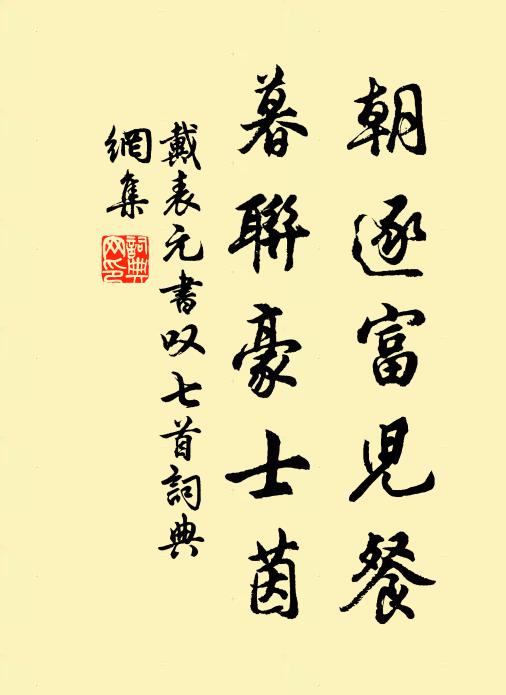 朝逐富児餐
暮聯豪士茵
戴表元書叹七首詞典
網集
詞典網印